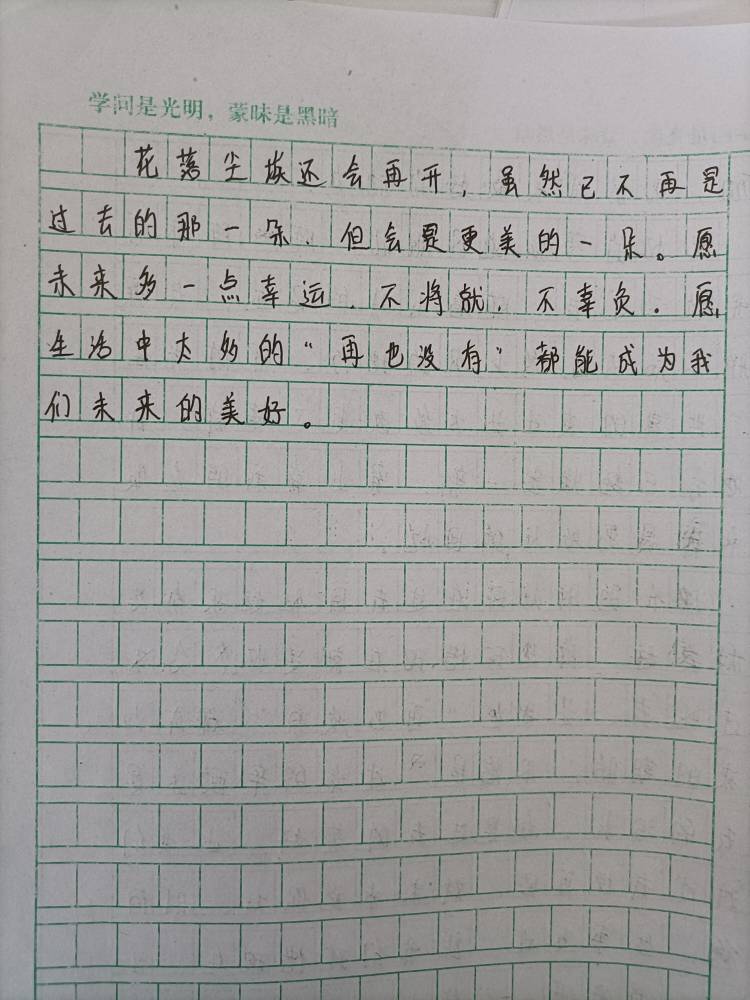 学问是光明，蒙昧是黑暗
花落尘埃还会再开，虽然已不再是
过去的那一朵，但会是更美的一朵。愿
未来多一点幸运，不将就，不辜负。愿
生活中太多的“再也没有”都能成为我
们未来的美好。